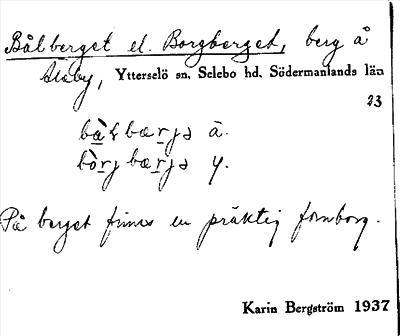 Bålberget el. Borgberget, berg å
Åleby, Ytterselö sn. Selebo hd. Södermanlands län
23
bå̀ɫbærjə ä.
bò̀rjbærjə y.
På berget finnes en präktig fornborg.
Karin Bergström 1937